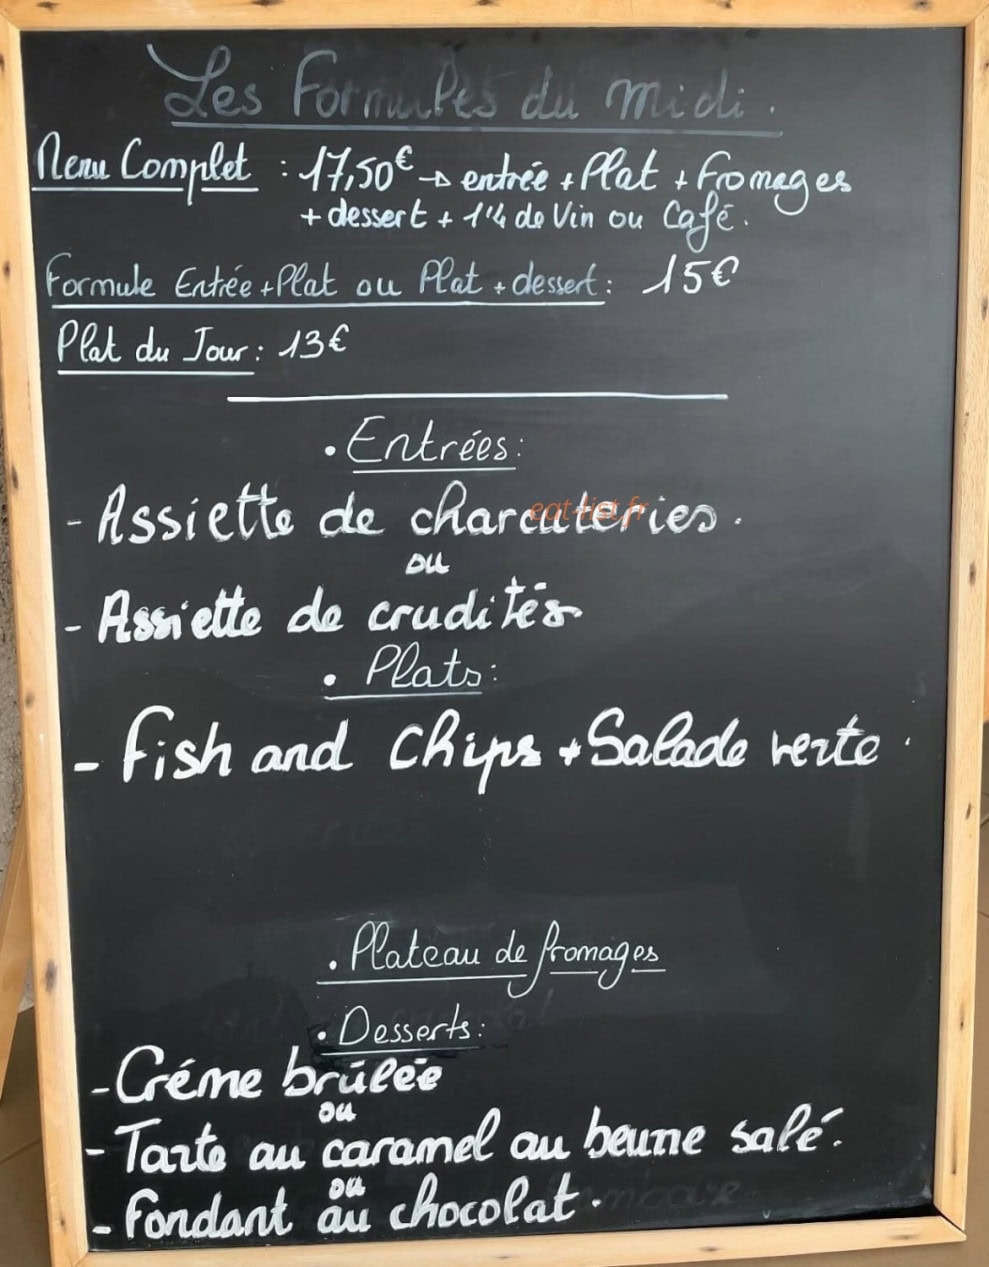 Les Formules du midi.
Menu Complet : 17,50€ → entrée + Plat + Fromages
+ dessert + 1/4 de Vin ou Café.
Formule Entrée + Plat ou Plat + dessert : 15€
Plat du Jour : 13€
• Entrées :
- Assiette de charcuteries.
eat-list.fr
ou
- Assiette de crudités
• Plats :
- Fish and Chips + Salade verte.
• Plateau de fromages
• Desserts :
- Créme brûlée
ou
- Tarte au caramel au beurre salé.
ou
- Fondant au chocolat.